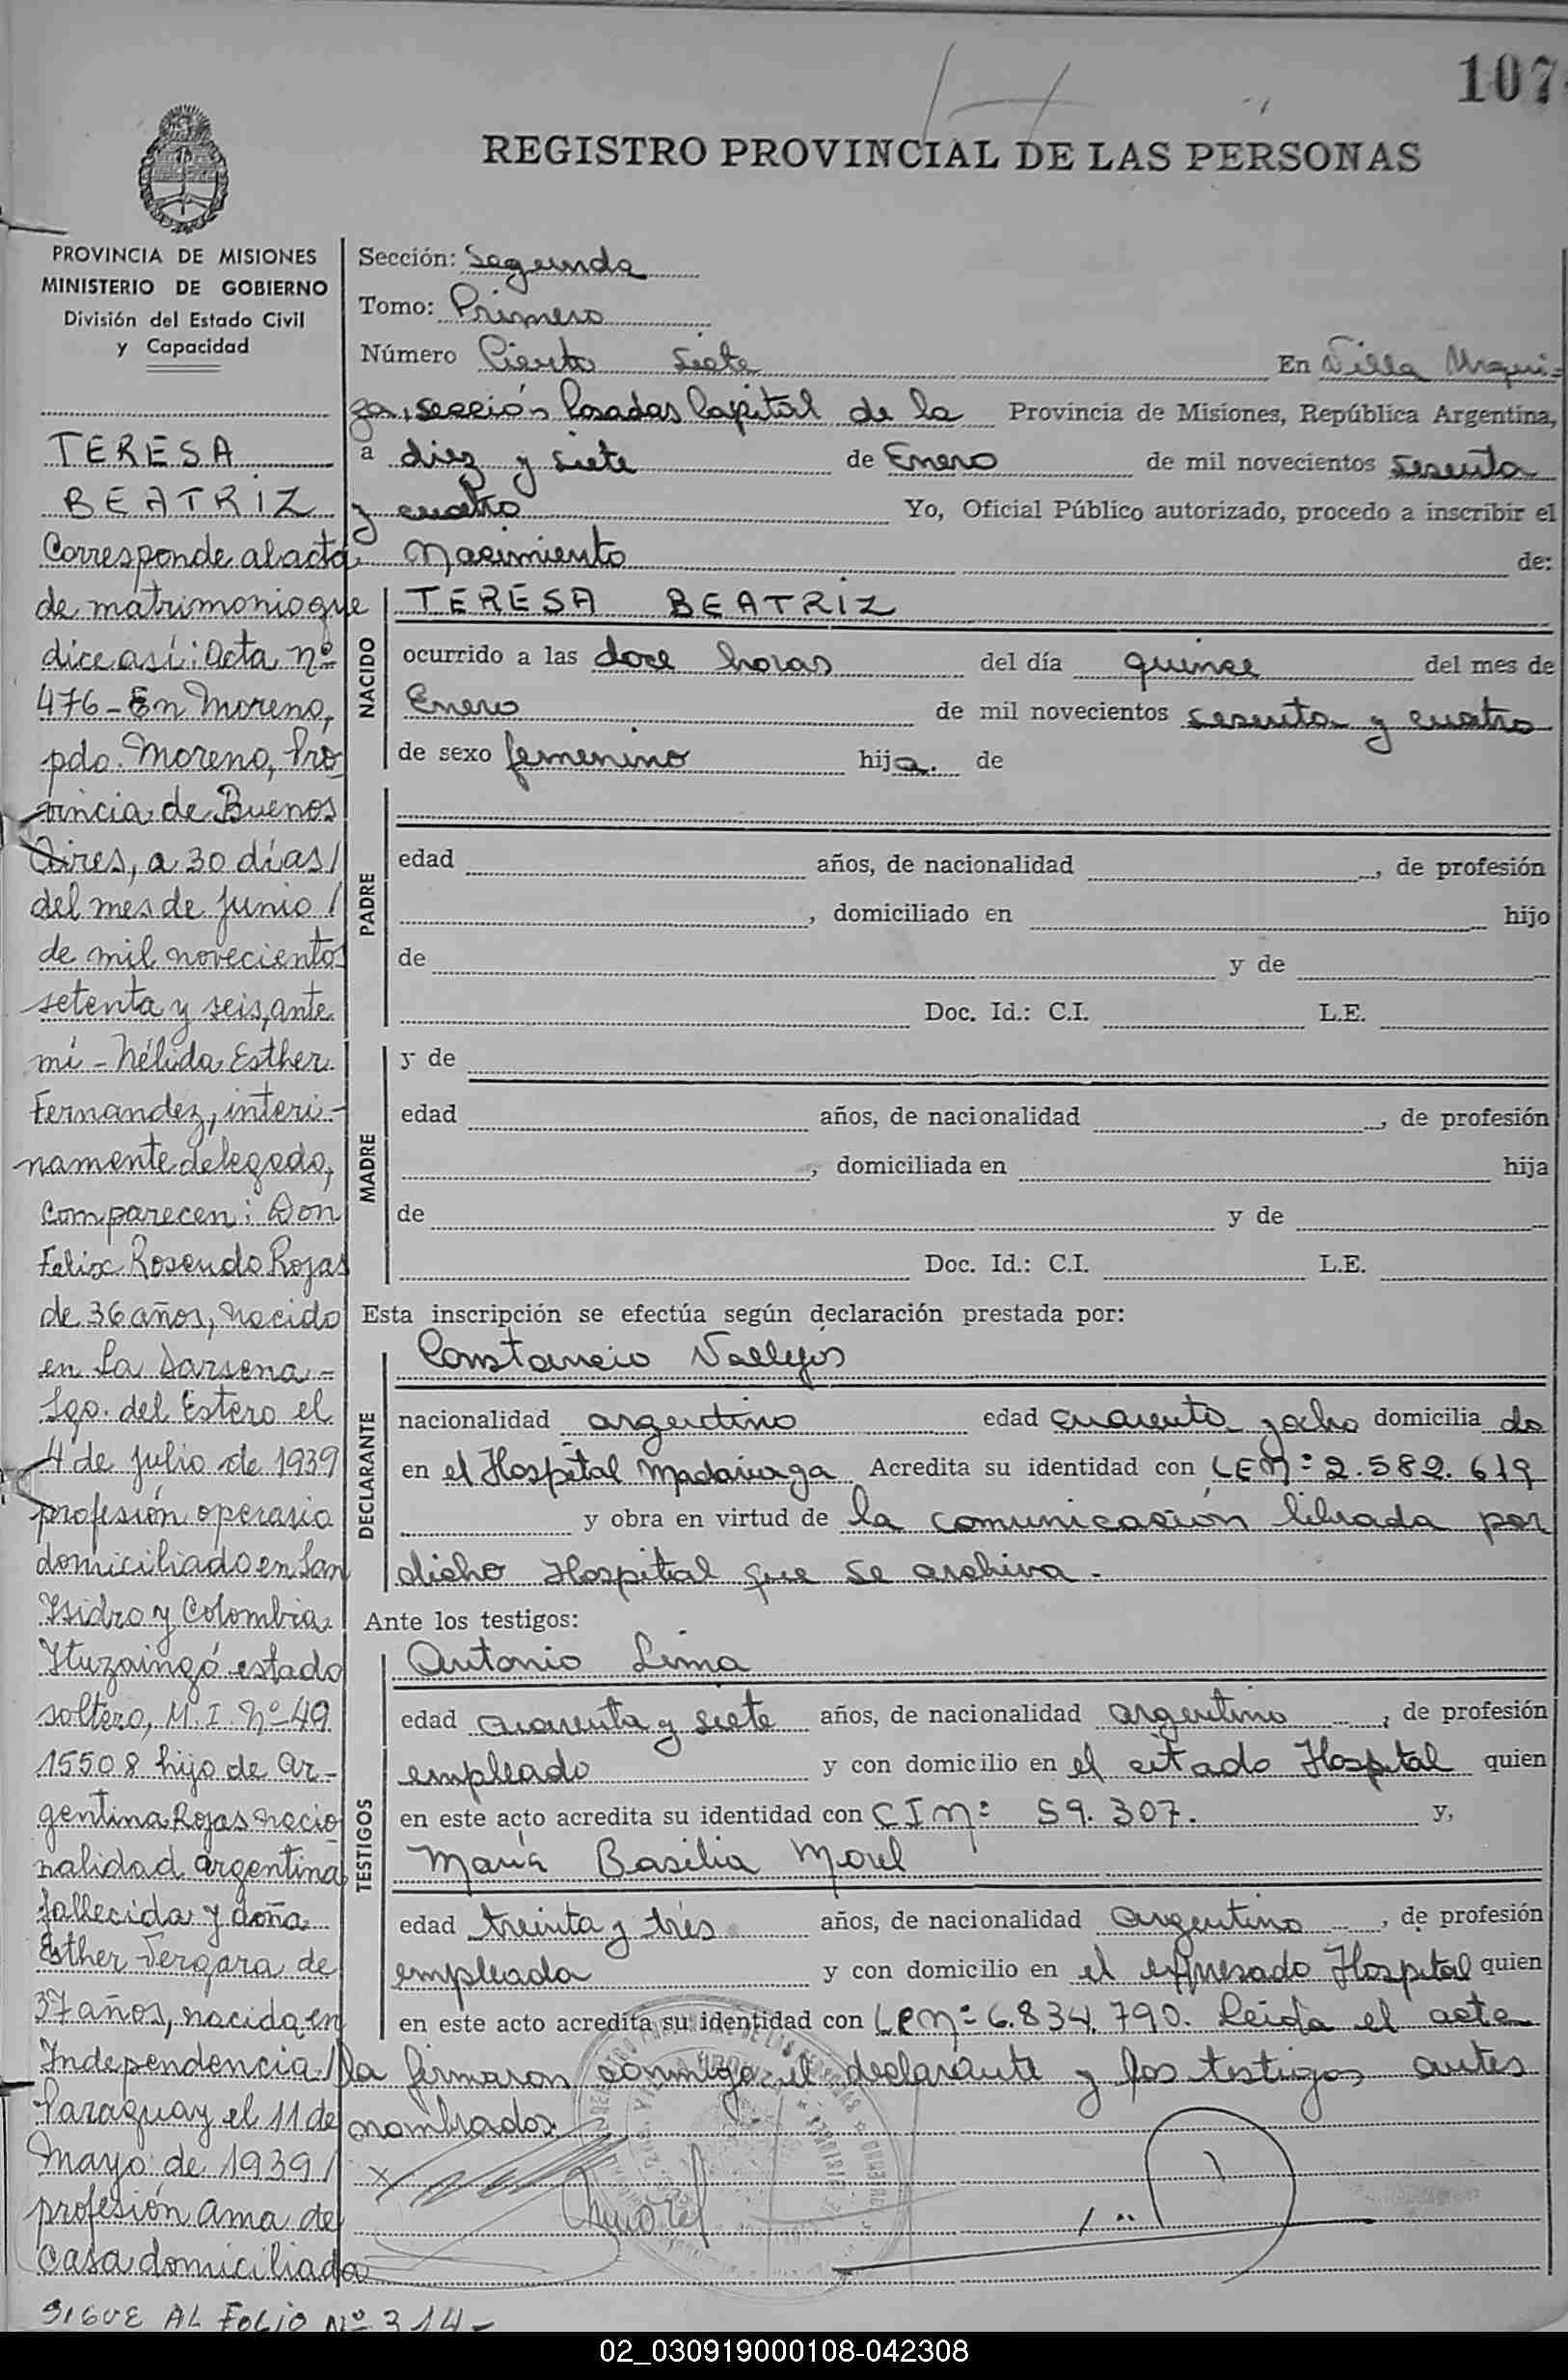 107
REGISTRO PROVINCIAL DE LAS PERSONAS
PROVINCIA DE MISIONES
MINISTERIO DE GOBIERNO
División del Estado Civil
y Capacidad
TERESA
BEATRIZ
Corresponde al acta
de matrimonio que
dice así: Acta nº
476 - En Moreno,
pdo. Moreno, Pro-
vincia de Buenos
Aires, a 30 días/
del mes de junio/
de mil novecientos
setenta y seis, ante
mí - Nélida Esther
Fernandez, interi-
namente delegado,
comparecen: Don
Felix Rosendo Rojas
de 36 años, nacido
en La Darsena -
Sgo. del Estero el
4 de julio de 1939
profesión operario
domiciliado en San
Isidro y Colombia
Ituzaingó estado
soltero, M. I. Nº 49
15508 hijo de Ar-
gentina Rojas nacio
nalidad argentina
fallecida y doña
Esther Vergara de
37 años, nacida en
Independencia/
Paraguay el 11 de
Mayo de 1939/
profesión ama de
casa domiciliada
SIGUE AL FOLIO Nº 314-
Sección: Segunda
Tomo: Primero
Número Ciento Siete En Villa Urqui-
za, sección Posadas Capital de la Provincia de Misiones, República Argentina,
a diez y siete de Enero de mil novecientos sesenta
y cuatro Yo, Oficial Público autorizado, procedo a inscribir el
Nacimiento de:
NACIDO
TERESA BEATRIZ
ocurrido a las doce horas del día quince del mes de
Enero de mil novecientos sesenta y cuatro
de sexo femenino hija. de
PADRE
edad años, de nacionalidad , de profesión
, domiciliado en hijo
de y de
Doc. Id.: C.I. L.E.
MADRE
y de
edad años, de nacionalidad , de profesión
, domiciliada en hija
de y de
Doc. Id.: C.I. L.E.
Esta inscripción se efectúa según declaración prestada por:
DECLARANTE
Constancio Vallejos
nacionalidad argentino edad cuarenta y ocho domicilia do
en el Hospital Madariaga Acredita su identidad con LE Nº 2.582.619
y obra en virtud de la comunicación librada por
dicho Hospital que se archiva.-
Ante los testigos:
TESTIGOS
Antonio Lima
edad cuarenta y siete años, de nacionalidad argentino , de profesión
empleado y con domicilio en el citado Hospital quien
en este acto acredita su identidad con CI Nº 59.307. y,
María Basilia Morel
edad treinta y tres años, de nacionalidad argentina , de profesión
empleada y con domicilio en el expresado Hospital quien
en este acto acredita su identidad con LE Nº 6.834.790. Leída el acta
la firmaron conmigo el declarante y los testigos antes
nombrados.
02_030919000108-042308